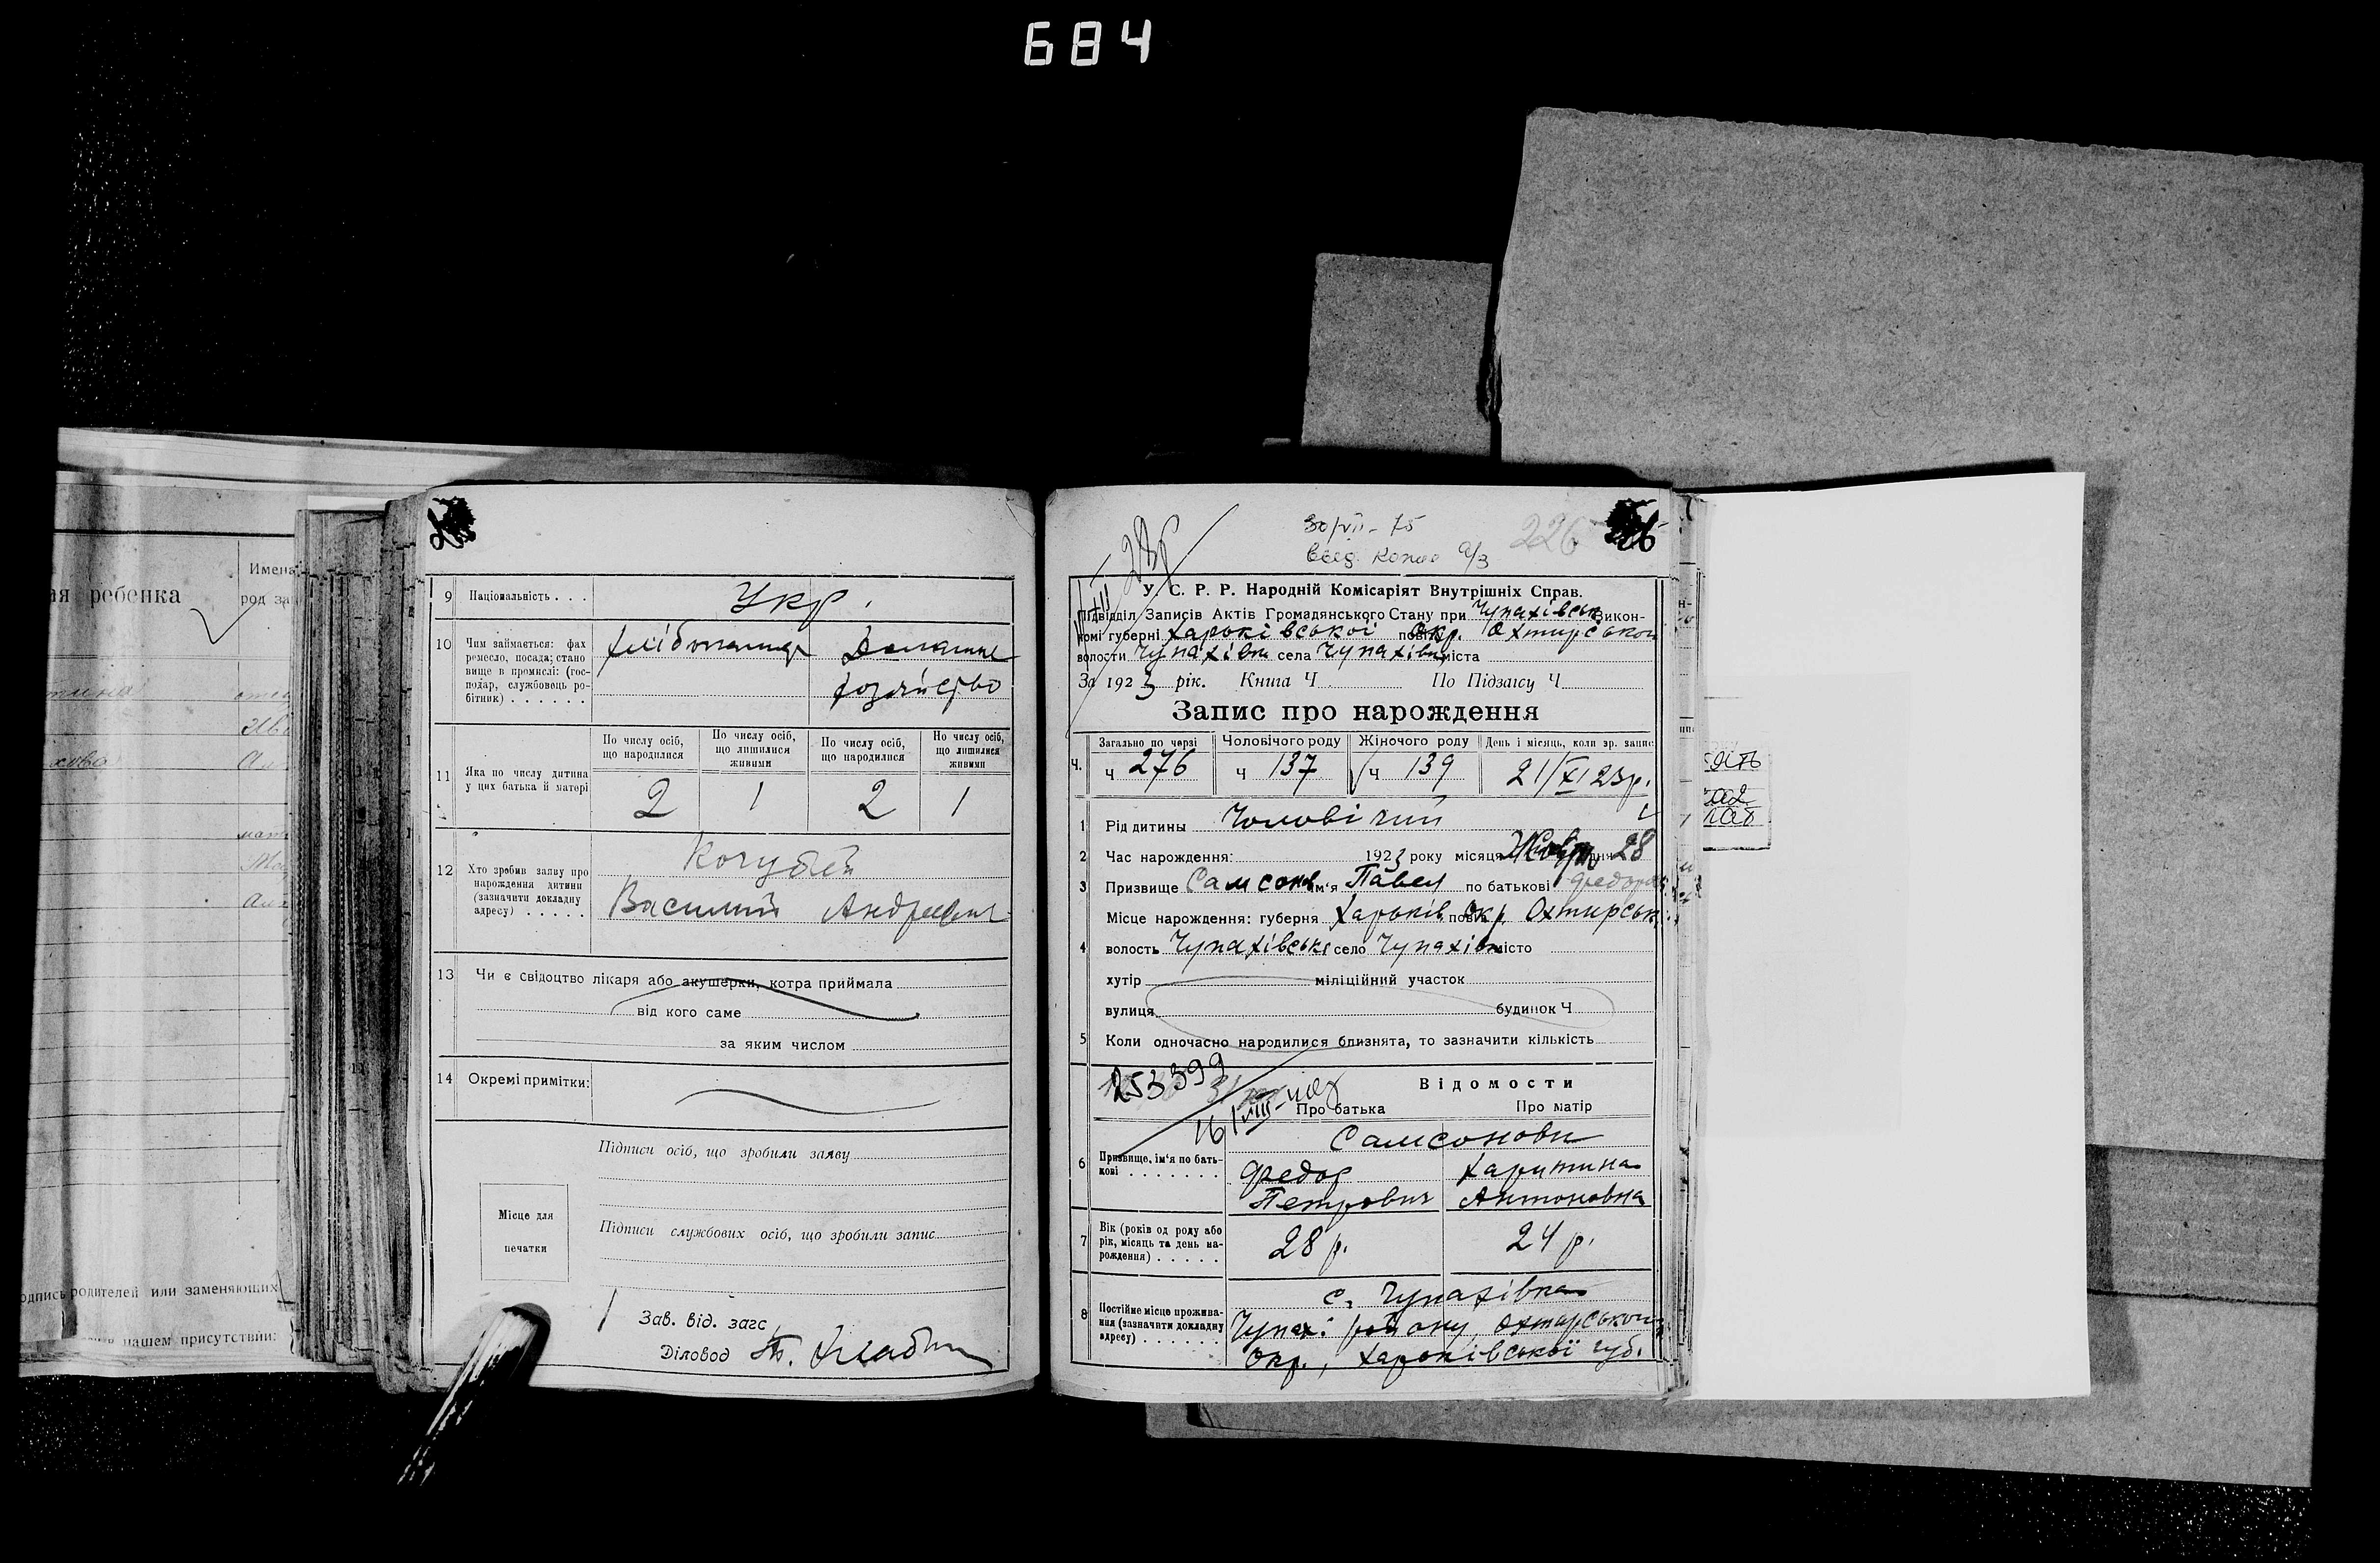 684
ая ребенка
Имена
род за
одпись родителей или заменяющих
нашем присутствии:
9 Національність . . .
Укр.
10 Чим займається: фах
ремесло, посада; стано
вище в промислі: (гос-
подар, службовець ро-
бітник) . . . . . .
Домашнє
хозяйство
11 Яка по числу дитина
у цих батька й матері
По числу осіб,
що народилися
По числу осіб,
що лишилися
живими
По числу осіб,
що народилися
По числу осіб,
що лишилися
живими
2 1 2 1
12 Хто зробив заяву про
нарождення дитини
(зазначити докладну
адресу) . . . . .
Кочубей
Василий Андреевич
13 Чи є свідоцтво лікаря або акушерки, котра приймала
від кого саме
за яким числом
14 Окремі примітки:
Підписи осіб, що зробили заяву
Місце для
печатки
Підписи службових осіб, що зробили запис
Зав. від. загс
Діловод
30/VII-75
226
У. С. Р. Р. Народній Комісаріят Внутрішніх Справ.
Підвідділ Записів Актів Громадянського Стану при Чупахівськ Викон-
комі губерні Харьківської пов. Окр. Охтирської
волости Чупахівк села Чупахівк міста
За 1923 рік. Книга Ч По Підзагсу Ч
Запис про нарождення
Загально по черзі Чоловічого роду Жіночого роду День і місяць, коли зр. запис
ч. ч 276 ч 137 ч 139 21/XI 23р.
1 Рід дитины Чоловічий
2 Час нарождення: 1923 року місяця Жовтн дня 28
3 Призвище Самсонов ім'я Павел по батькові Федоров
Місце нарождення: губерня Харьків. пов. Окр. Охтирськ.
4 волость Чупахівськ село Чупахівк місто
хутір міліційний участок
вулиця будинок Ч
5 Коли одночасно народилися близнята, то зазначити кількість
253399
Відомости
Про батька Про матір
6 Призвище, ім'я по бать-
кові . . . . . . .
Самсонови
Федор Харитина
Петрович Антоновна
7 Вік (років од роду або
рік, місяць та день на-
рождення) . . . . .
28 р. 24 р.
8 Постійне місце прожива-
ння (зазначити докладну
адресу) . . . . . .
с. Чупахівка
Чупах. району, Охтирської
Окр., Харьківської губ.